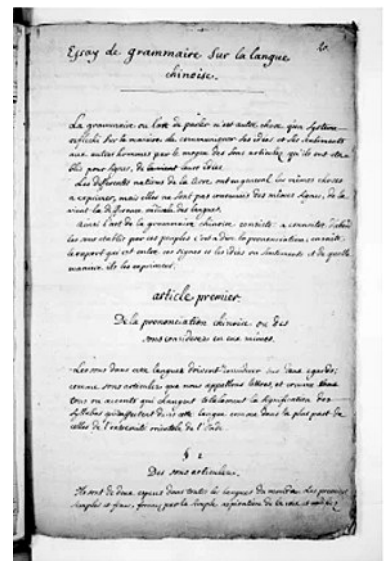 20.
Essay de grammaire Sur la langue
chinoise.
La grammaire ou l'art de parler n'est autre chose qu'un systeme
reflechi sur la maniere de communiquer ses idées et ses sentiments
aux autres hommes par le moyen des sons articulez qu'ils ont eta-
blis pour signes, de leurs idées
Les differentes nations de la terre ont en general les mêmes choses
a exprimer, mais elles ne sont pas convenues des mêmes signes, de la
vient la difference radicale des langues.
ainsi l'art de la grammaire chinoise consiste a connoitre d'abord
les sons etablis par ces peuples c'est a dire la prononciation; ensuite
le raport qui est entre ces signes et les idées ou sentiments et de quelle
maniere ils les expriment.
article premier.
De la prononciation chinoise ou des
sons considerez en eux mêmes.
Les sons dans cette langue doivent se considerer sous deux egards;
comme sons articulez que nous appellons lettres, et comme
tons ou accents qui changent totalement la signification des
syllabes dans cette langue comme dans la plus part de
celles de l'extremité orientale de l'Inde.
§ 1
Des sons articulez.
Ils sont de deux especes dans toutes les langues du monde. Les premiers
simples et formez par la simple aspiration de la voix et